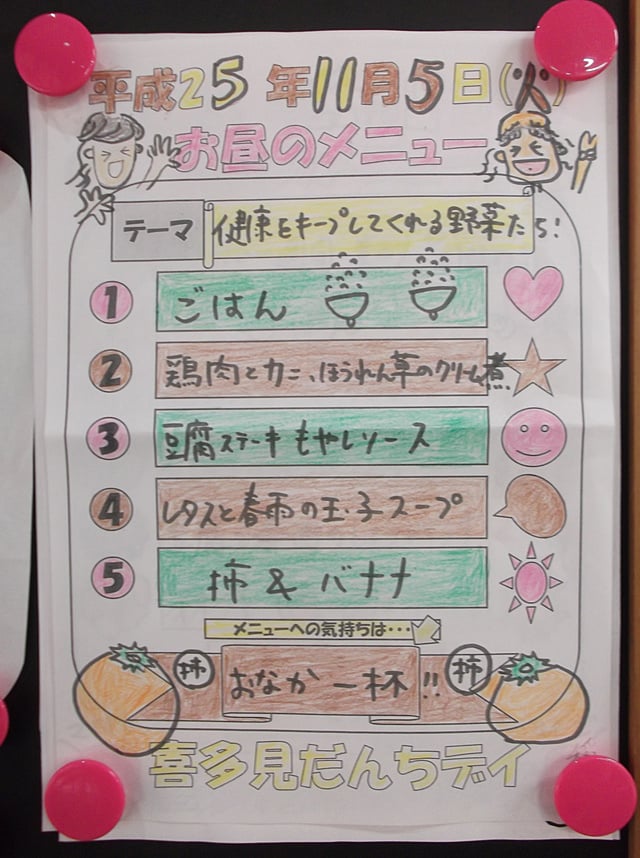 平成25年11月5日(火)
お昼のメニュー
テーマ 健康をキープしてくれる野菜たち!
1 ごはん
2 鶏肉とカニ、ほうれん草のクリーム煮
3 豆腐ステーキ もやしソース
4 レタスと春雨の玉子スープ
5 柿&バナナ
メニューへの気持ちは・・・
柿 おなか一杯!! 柿
喜多見だんちデイ